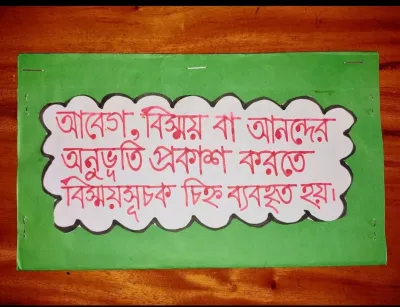 আবেগ, বিস্ময় বা আনন্দের
অনুভূতি প্রকাশ করতে
বিস্ময়সূচক চিহ্ন ব্যবহৃত হয়।